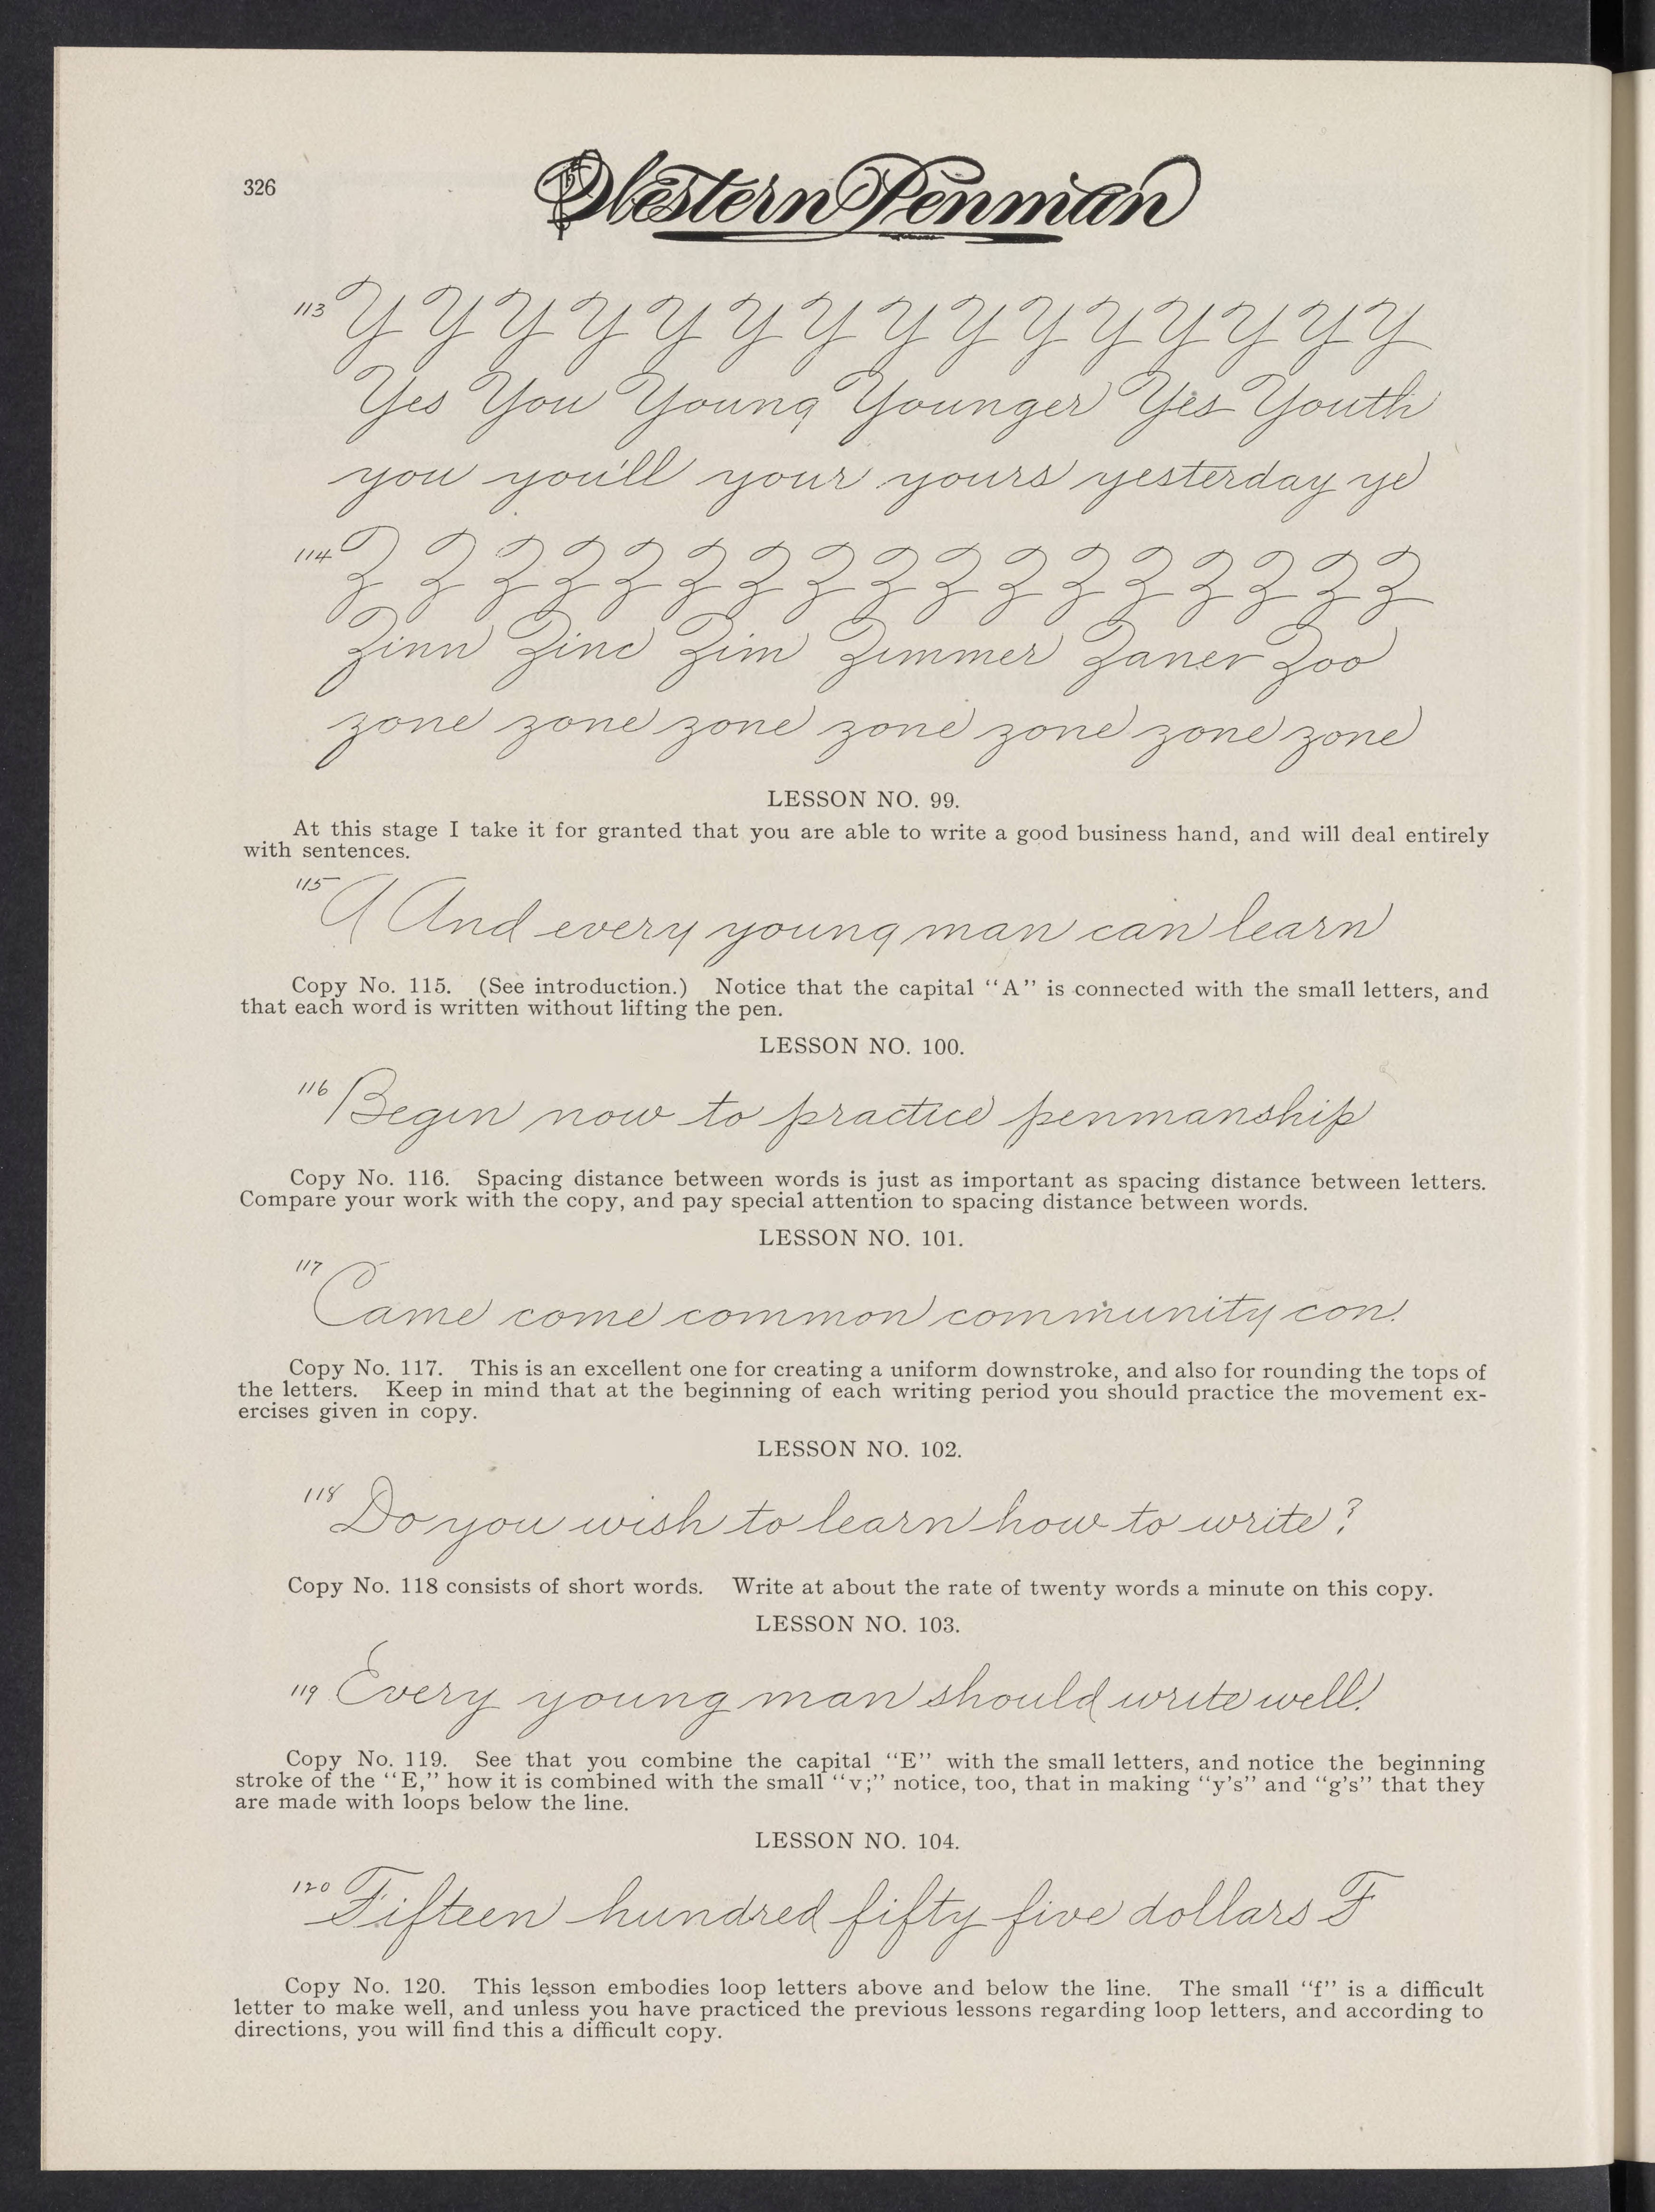 326
Western Penman
113 Y Y Y Y Y Y Y Y Y Y Y Y Y Y Y
Yes You Young Younger Yes Youth
you you'll your yours yesterday ye
114 Z Z Z Z Z Z Z Z Z Z Z Z Z Z Z Z Z
Zinn Zinc Zim Zimmer Zaner Zoo
zone zone zone zone zone zone zone
LESSON NO. 99.
At this stage I take it for granted that you are able to write a good business hand, and will deal entirely
with sentences.
115 A And every young man can learn
Copy No. 115. (See introduction.) Notice that the capital "A" is connected with the small letters, and
that each word is written without lifting the pen.
LESSON NO. 100.
116 Begin now to practice penmanship
Copy No. 116. Spacing distance between words is just as important as spacing distance between letters.
Compare your work with the copy, and pay special attention to spacing distance between words.
LESSON NO. 101.
117 Came come common community con.
Copy No. 117. This is an excellent one for creating a uniform downstroke, and also for rounding the tops of
the letters. Keep in mind that at the beginning of each writing period you should practice the movement ex-
ercises given in copy.
LESSON NO. 102.
118 Do you wish to learn how to write?
Copy No. 118 consists of short words. Write at about the rate of twenty words a minute on this copy.
LESSON NO. 103.
119 Every young man should write well.
Copy No. 119. See that you combine the capital "E" with the small letters, and notice the beginning
stroke of the "E," how it is combined with the small "v;" notice, too, that in making "y's" and "g's" that they
are made with loops below the line.
LESSON NO. 104.
120 Fifteen hundred fifty five dollars F
Copy No. 120. This lesson embodies loop letters above and below the line. The small "f" is a difficult
letter to make well, and unless you have practiced the previous lessons regarding loop letters, and according to
directions, you will find this a difficult copy.